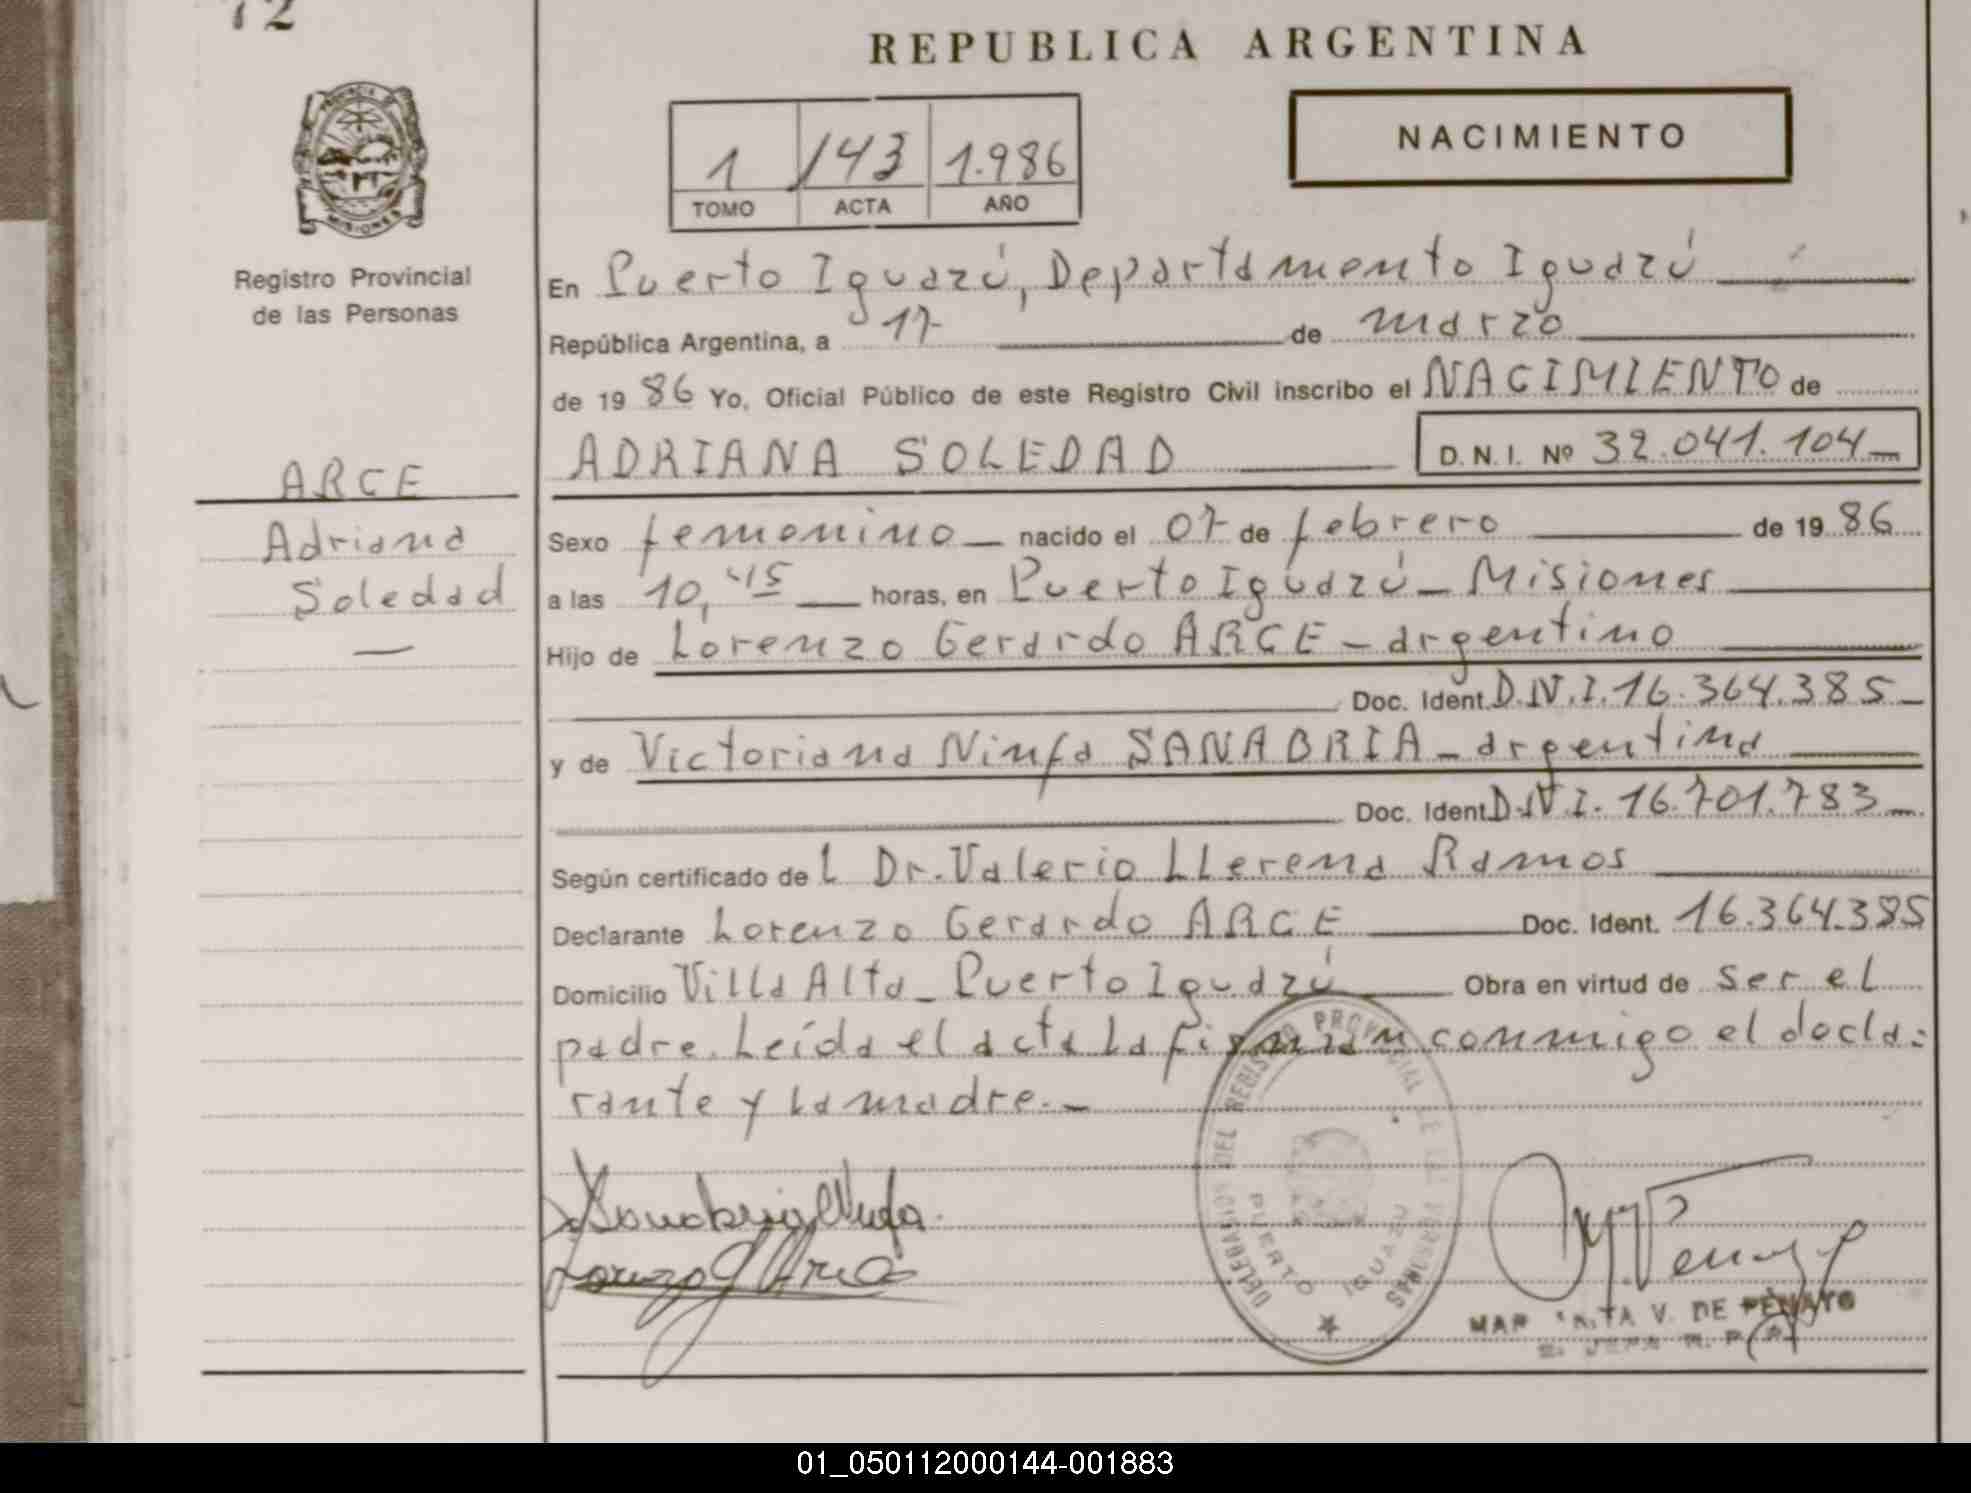 72
REPUBLICA ARGENTINA
PROVINCIA DE
MISIONES
1 143 1.986
TOMO ACTA AÑO
NACIMIENTO
Registro Provincial
de las Personas
En Puerto Iguazú, Departamento Iguazú
República Argentina, a 17 de marzo
de 19 86 Yo, Oficial Público de este Registro Civil inscribo el NACIMIENTO de
ADRIANA SOLEDAD D. N. I. Nº 32.041.104
ARCE
Adriana
Soledad
Sexo femenino nacido el 07 de febrero de 19 86
a las 10,45 horas, en Puerto Iguazú - Misiones
Hijo de Lorenzo Gerardo ARCE - argentino
Doc. Ident. D.N.I. 16.364.385
y de Victoriana Ninfa SANABRIA - argentina
Doc. Ident. D.N.I. 16.701.783
Según certificado de L Dr. Valerio LLerena Ramos
Declarante Lorenzo Gerardo ARCE Doc. Ident. 16.364.385
Domicilio Villa Alta - Puerto Iguazú Obra en virtud de ser el
padre. Leída el acta la firman conmigo el decla-
rante y la madre.-
DELEGACION DEL REGISTRO PROVINCIAL DE LAS PERSONAS
PUERTO IGUAZU
Sanabria Ninfa
Lorenzo G Arce
V. DE PENAYO
01_050112000144-001883